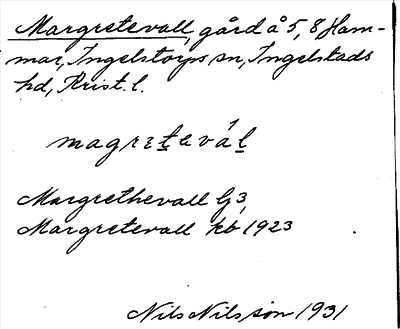 Margretevall, gård å 5, 8 Ham-
mar, Ingelstorps sn, Ingelstads
hd, Krist. l.
magrɛtevál
Margrethevall G3,
Margretevall kb 1923
Nils Nilsson 1931